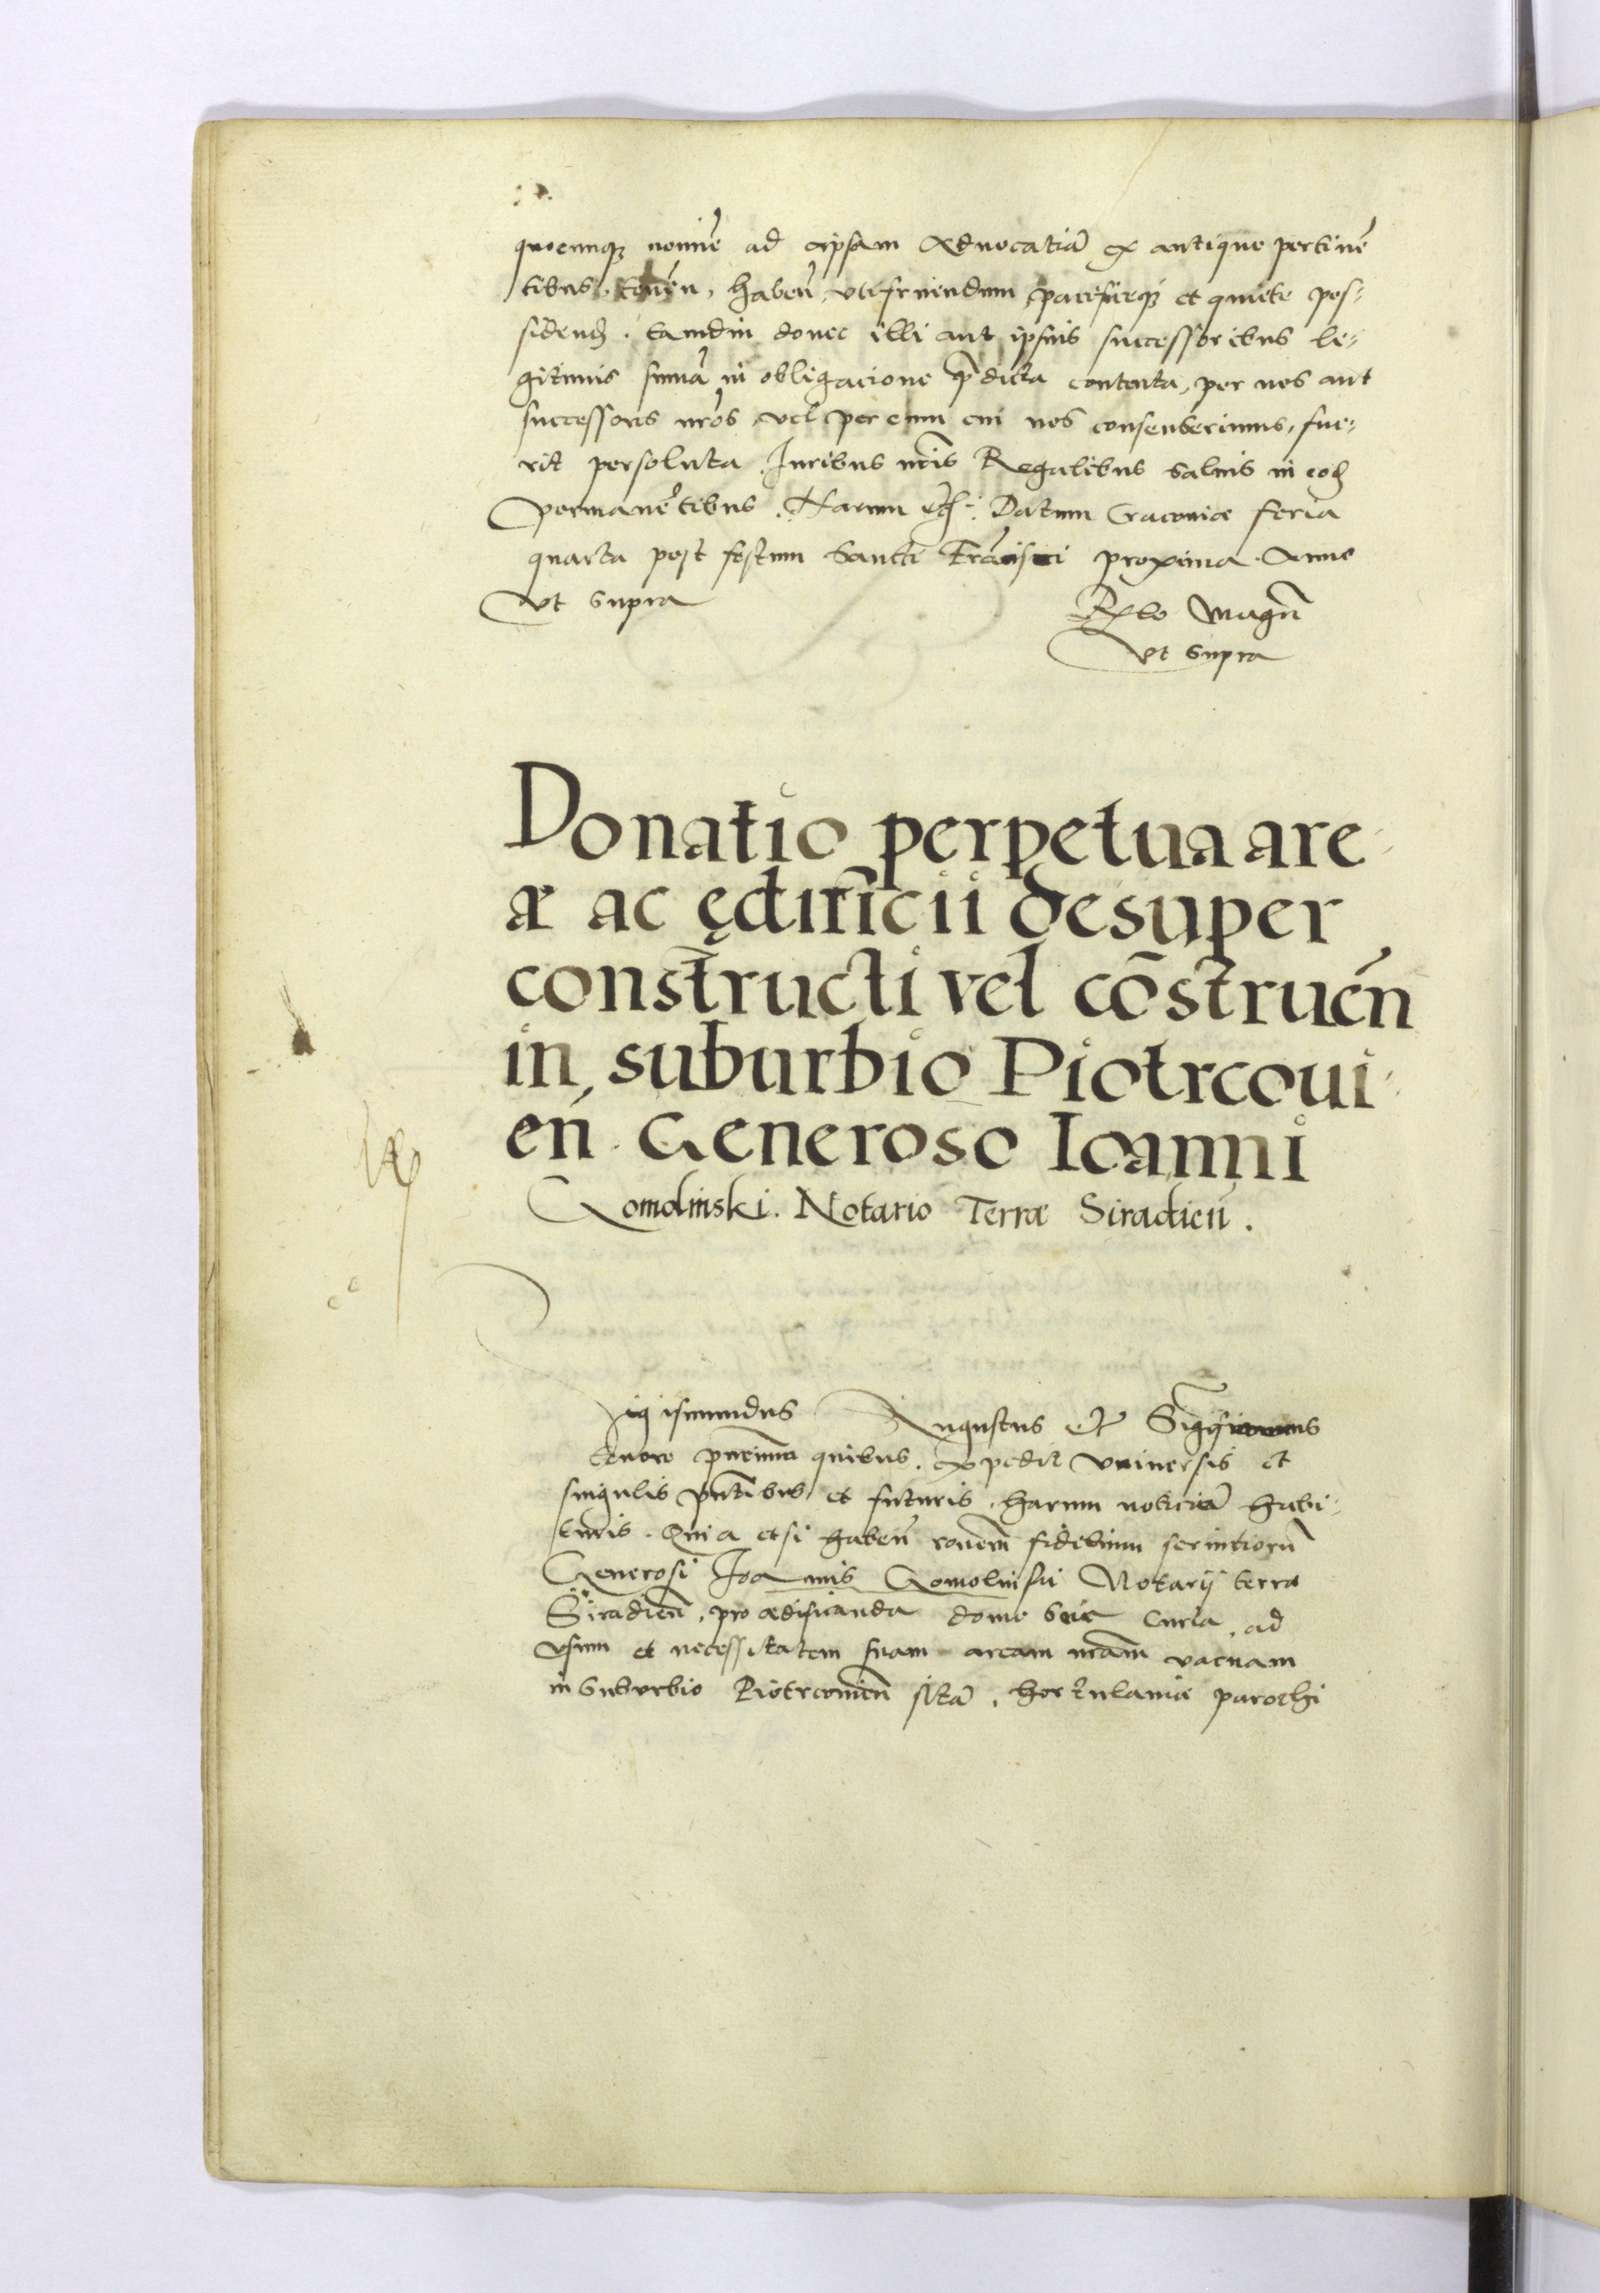 quocunq; nomine ad ipsam Aduocatiã ex antiquo pertinẽ
tibus, tenen, habeñ, vtifruendum, pacificeq; et quiete pos-
sidend. tamdiu donec illi aut ipsius successoribus le-
gitimis sum̃a in obligacione p̃dicta contenta, per nos aut
successores nr̃os, vel per eum cui nos consenserimus, fue-
rit persoluta. Iuribus nr̃is Regalibus saluis in eod
permanẽtibus. Harum etc. Datum Cracouiæ feria
quarta post festum Sancti Frãcisci proxima. Anno
vt supra
Rlo Magñ
vt supra
Donatio perpetua are-
æ ac ędificii desuper
constructi vel cõstrueñ
in suburbio Piotrcoui-
eñ. Generoso Ioanni
Gomolinski. Notario Terræ Siradieñ.
Sigismundus Augustus etc
tenore pñtium quibus expedit vniuersis et
singulis pñtibus et futuris, harum noticiã habi-
turis. Quia etsi habeñ roñem fidelium seruitiorũ
Generosi Ioannis Gomolinski Notarij terræ
Siradieñ, pro ædificanda domo siue Curia, ad
vsum et necessitatem suam aream nr̃am vacuam
in Suburbio Piotrcouieñ sitã, hortulaniæ parochi